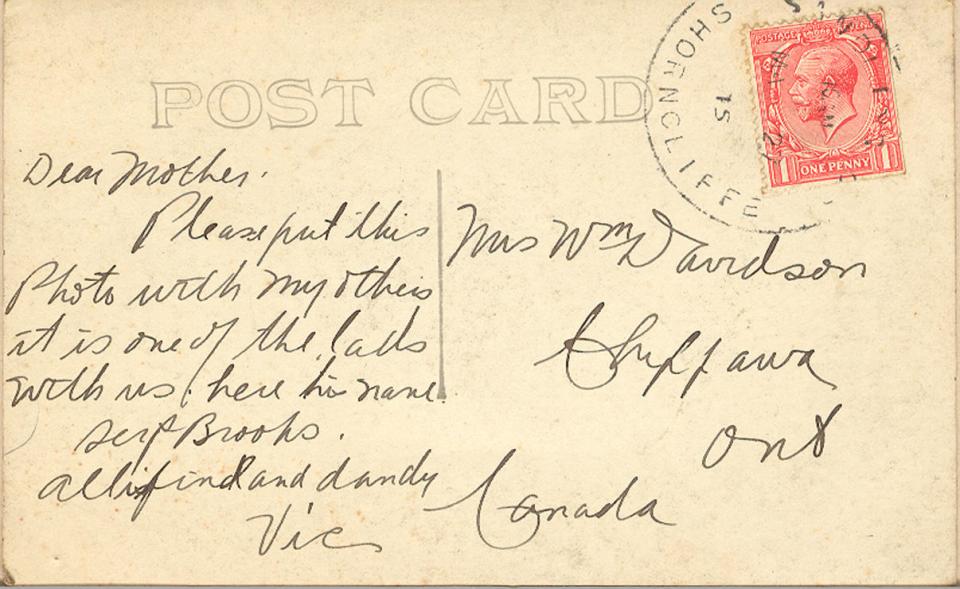 POST CARD
SHORNCLIFFE
15
POSTAGE REVENUE
1 ONE PENNY 1
Dear Mother.
Please put this
Photo with my others
it is one of the lads
with us here his name
Serg Brooks.
all is fine and dandy
Vic
Mrs Wm Davidson
Chippawa
Ont
Canada